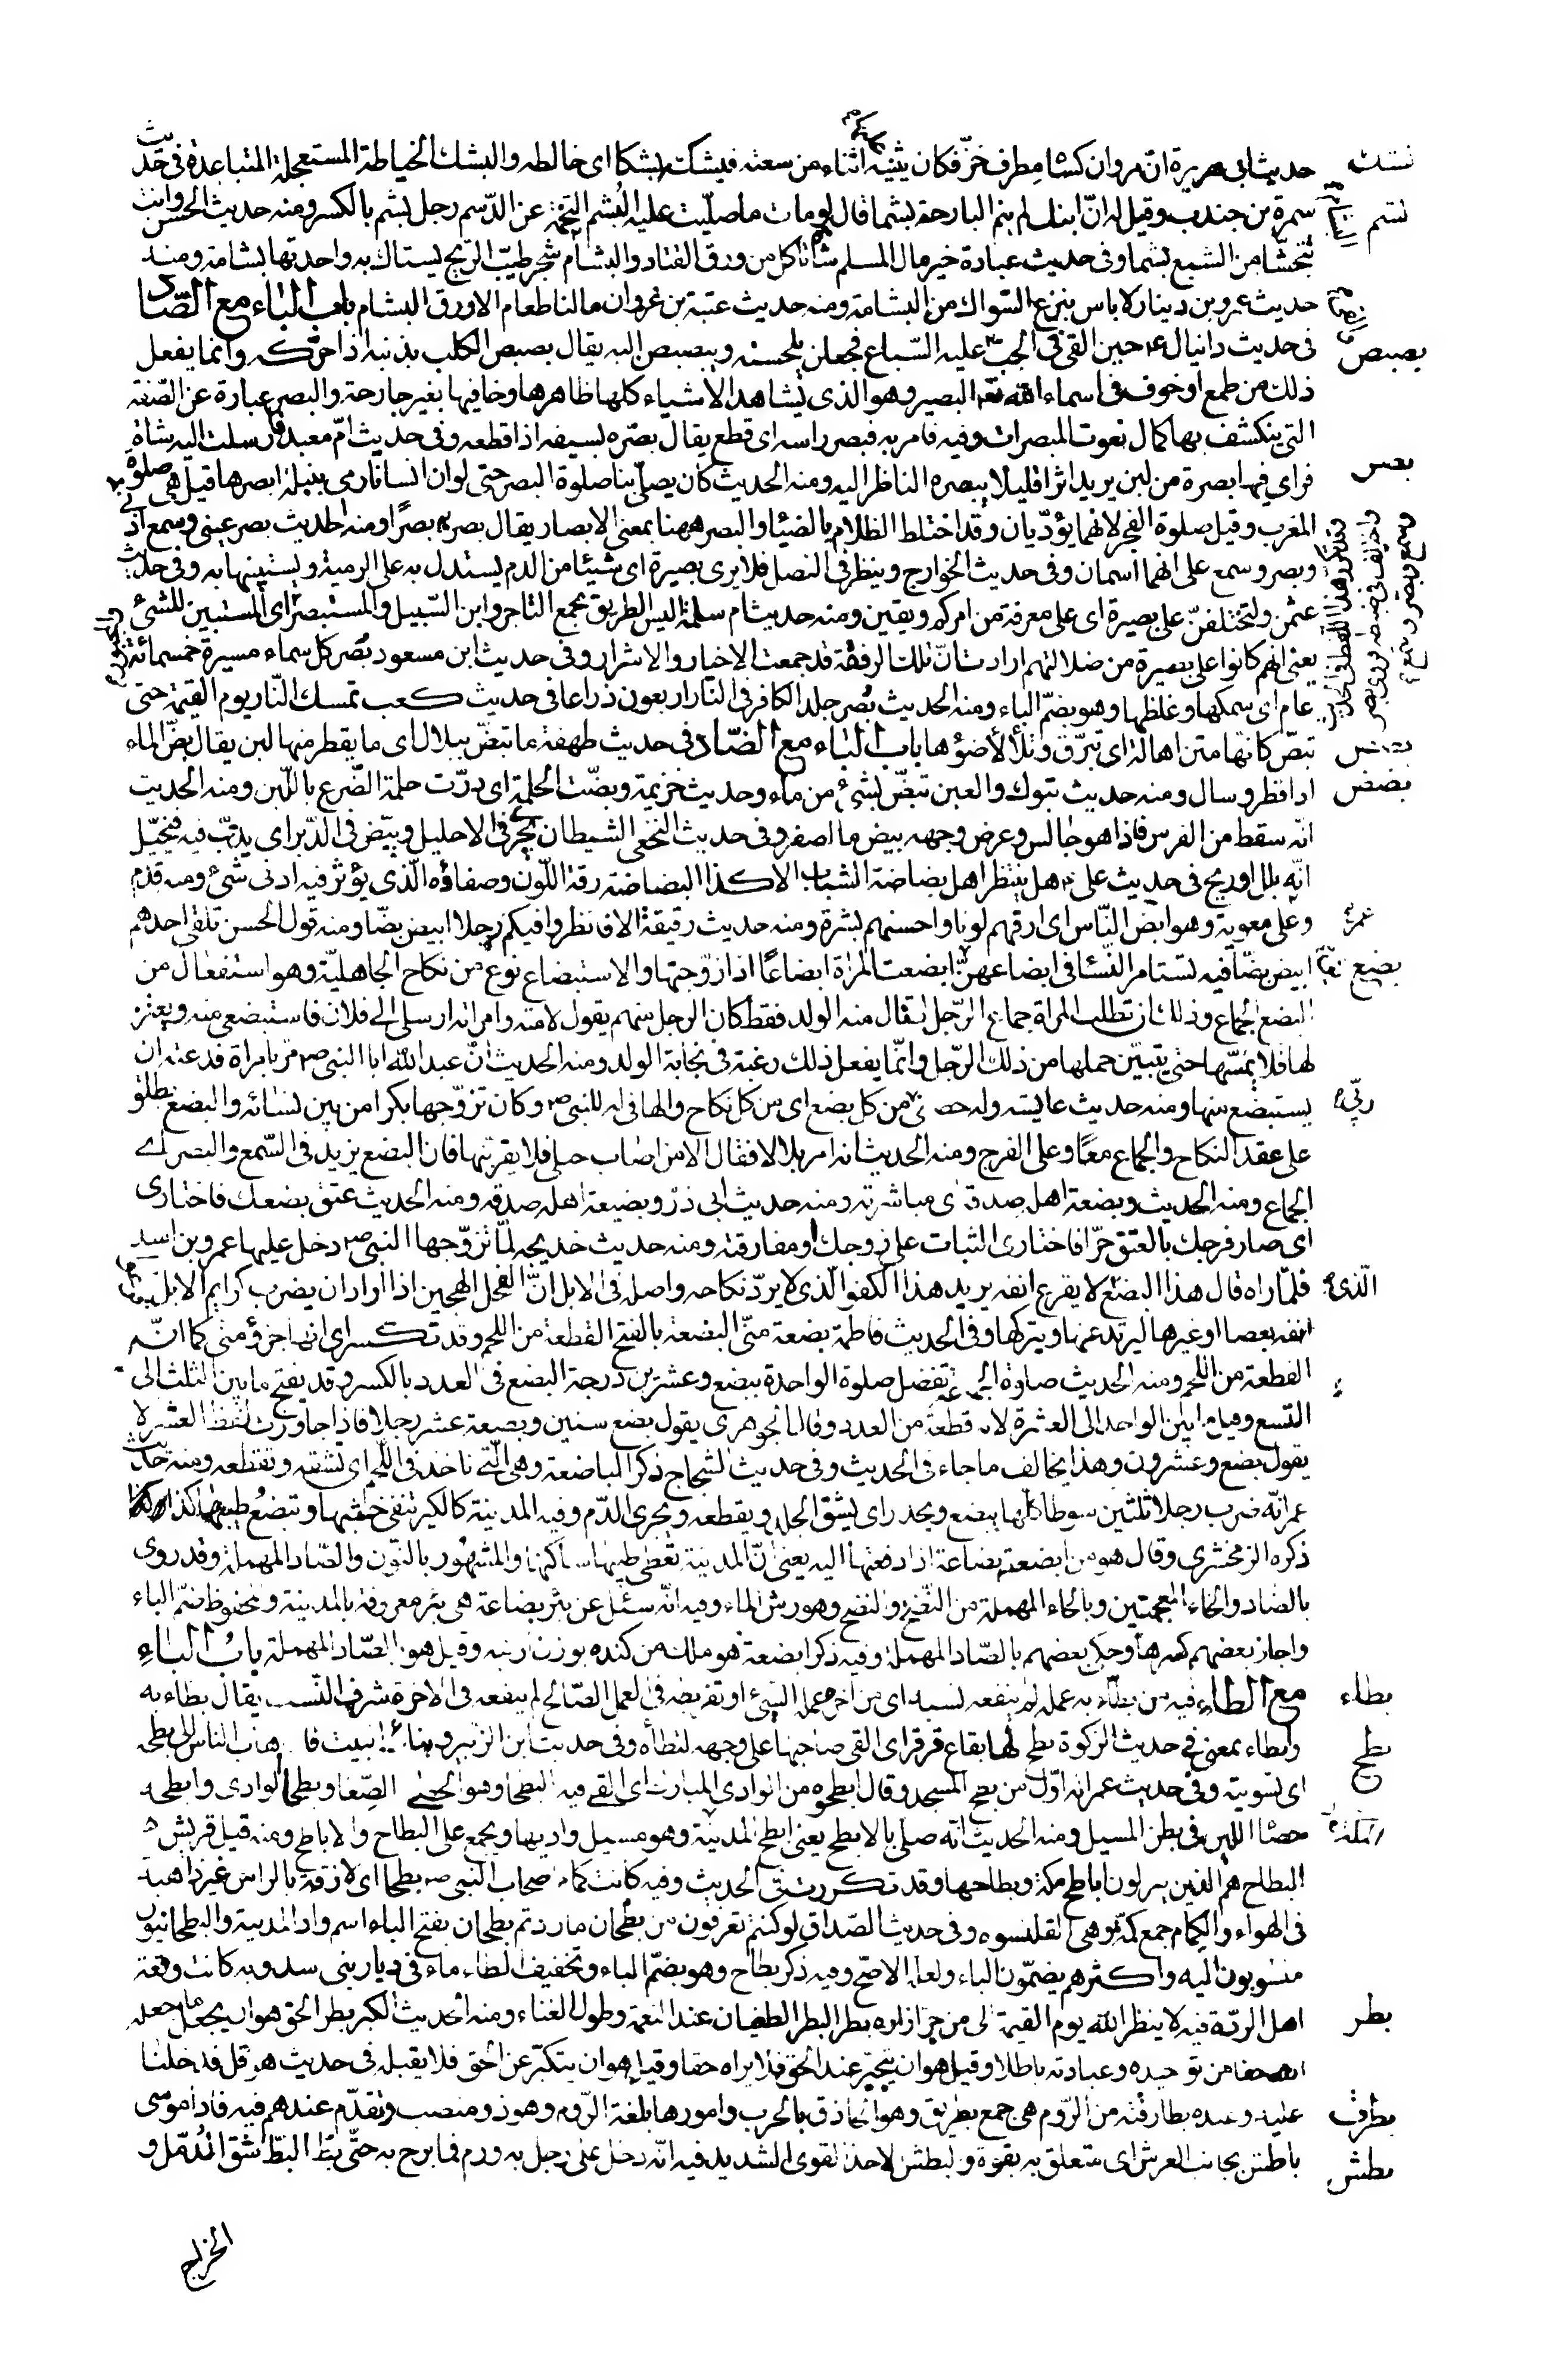 حديث ابى هريرة انّ مروان كساه مطرف خزّ فكان يثنيه اثناء من سعته فبشكت بشكا اى خالطه والبشك الخياطة المستعجلة المتباعدة فى حديث
سمرة بن جندب وقيل له انّ ابنك لم ينم البارحة بشما قال لو مات ما صلّيت عليه البشم التخمة عن الدّسم رجل بشم بالكسر ومنه حديث الحسن وانت
تتجشّا من الشبع بشما وفى حديث عبادة خير مال المسلم شاة تاكل من ورق القتاد والبشام شجر طيّب الريح يستاك به واحدتها بشامة ومنه
حديث عمرو بن دينار لا باس بنزع السّواك من البشامة ومنه حديث عتبة بن غزوان مالنا طعام الا ورق البشام باب الباء مع الصّاد
فى حديث دانيال ع حين القى فى الجبّ عليه السّباع فجعلن يلحسنه ويبصبصن اليه يقال بصبص الكلب بذنبه اذا حرّكه وانما يفعل
ذلك من طمع او خوف فى اسماء الله تعالى البصير وهو الذى يشاهد الاشياء كلها ظاهرها وخافيها بغير جارحة والبصر عبارة عن الصّفة
التى ينكشف بها كمال نعوت المبصرات وفيه فامر به فبصر راسه اى قطع يقال بصّره بسيفه اذا قطعه وفى حديث امّ معبد فارسلت اليه بشاة
فراى فيها بصرة من لبن يريد اثرا قليلا يبصره الناظر اليه ومنه الحديث كان يصلّى بنا صلوة البصر حتى لو ان انسانا رمى بنبلة ابصرها قيل هى صلوة
المغرب وقيل صلوة الفجر لانهما يؤدّيان وقد اختلط الظلام بالضياء والبصر ههنا بمعنى الابصار يقال بصر به بصرًا ومنه الحديث بصر عينى وسمع اذنى
وبصر وسمع على انهما اسمان وفى حديث الخوارج وينظر فى النصل فلا يرى بصيرة اى شيئا من الدم يستدل به على الرمية ويستبينها به وفى حديث
عثمن ولتختلفنّ على بصيرة اى على معرفة من امركم ويقين ومنه حديث ام سلمة اليس الطريق يجمع التاجر وابن السّبيل والمستبصر اى المستبين للشئ
يعنى انهم كانوا على بصيرة من ضلالتهم ارادت انّ تلك الرفقة قد جمعت الاخيار والاشرار وفى حديث ابن مسعود بُصر كل سماء مسيرة خمسمائة
عام اى سمكها وغلظها وهو بضمّ الباء ومنه الحديث بُصر جلد الكافر فى النّار اربعون ذراعا فى حديث كعب تمسك النّار يوم القيمة حتى
تبصّ كانها متن اهالة اى تبرق وتلألأ ضوؤها باب الباء مع الضّاد فى حديث طهفة ما تبضّ ببلال اى ما يقطر منها لبن يقال بضّ الماء
اذا قطر وسال ومنه حديث تبوك والعين تبضّ بشئ من ماء وحديث خزيمة وبضّت الحلمة اى درّت حلمة الضّرع باللّبن ومنه الحديث
انّه سقط من الفرس فاذا هو جالس وعرض وجهه يبض ماء اصفر وفى حديث النخعى الشيطان يجرى فى الاحليل ويبض فى الدّبر اى يدبّ فيه فيخيّل
انّه بلل او ريح فى حديث على ع هل ينتظر اهل بضاضة الشباب الا كذا البضاضة رقة اللّون وصفاؤه الّذى يؤثر فيه ادنى شئ ومنه قدم
وعلى معوية وهو ابضّ النّاس اى ارقهم لونا واحسنهم بشرة ومنه حديث رقيقة الا فانظروا فيكم رجلا ابيض بضّا ومنه قول الحسن تلقى احدهم
ابيض بضّا فيه تستامر النّساء فى ابضاعهنّ يق ابضعت المراة ابضاعًا اذا زوّجتها والاستبضاع نوع من نكاح الجاهليّة وهو استفعال من
البضع الجماع وذلك ان تطلب المراة جماع الرّجل لتنال منه الولد فقط كان الرجل منهم يقول لامته وامراته ارسلى الى فلان فاستبضعى منه ويعتزلها
لها فلا يمسّها حتى يتبيّن حملها من ذلك الرّجل وانّما يفعل ذلك رغبة فى نجابة الولد ومنه الحديث انّ عبد الله ابا النبى ص مرّ بامراة فدعته ان
يستبضع منها ومنه حديث عايشة وله حصننى من كل بضع اى من كل نكاح والهاء فى له للنبى ص وكان تزوّجها بكرا من بين نسائه والبضع يطلق
على عقد النكاح والجماع معًا وعلى الفرج ومنه الحديث انه امر بلالا فقال الا من اصاب حبلى فلا يقربنها فان البضع يزيد فى السّمع والبصر اى
الجماع ومنه الحديث وبضعة اهله صدقة اى مباشرته ومنه حديث ابى ذرّ وبضيعة اهله صدقه ومنه الحديث عتق بضعك فاختارى
اى صار فرجك بالعتق حرّا فاختارى الثبات على زوجك او مفارقته ومنه حديث خديجه لمّا تزوّجها النبى ص دخل عليها عمرو بن اسيد
فلمّا راه قال هذا البضع لا يقرع انفه يريد هذا الكفو الّذى لا يردّ نكاحه واصله فى الابل انّ الفحل الهجين اذا اراد ان يضرب كرايم الابل
انفه بعصا او غيرها ليرتد عنها ويتركها وفى الحديث فاطمة بضعة منّى البضعة بالفتح القطعة من اللحم وقد تكسر اى انها جزؤ منى كما انّه
القطعة من اللحم ومنه الحديث صلوة الجماعة تفضل صلوة الواحدة ببضع وعشرين درجة البضع فى العدد بالكسر وقد يفتح ما بين الثلث الى
التسع وقيل ما بين الواحد الى العشرة لانه قطعة من العدد وقال الجوهرى يقول بضع سنين وبضعة عشر رجلا فاذا جاوزت لفظ العشر لا
يقول بضع وعشرون وهذا يخالف ما جاء فى الحديث وفى حديث الشجاج ذكر الباضعة وهى الّتى تاخذ فى اللّحم اى تشقه وتقطعه ومنه حديث
عمر انّه ضرب رجلا ثلثين سوطا كلّها يبضع ويحدر اى يشق الجلد ويقطعه ويجرى الدّم وفيه المدينة كالكير تنفى خبثها وتبضع طيبها كذا
ذكره الزمخشرى وقال هو من ابضعته بضاعة اذا دفعتها اليه يعنى انّ المدينة تعطى طيبها ساكنها والمشهور بالنون والصّاد المهملة وقد روى
بالضاد والخاء المعجمتين وبالحاء المهملة من النّضخ والنضح وهو رش الماء وفيه انّه سئل عن بئر بضاعة هى بئر معروفة بالمدينة والمحفوظ ضمّ الباء
واجاز بعضهم كسرها وحكى بعضهم بالصّاد المهملة وفيه ذكر ابضعة هو ملك من كنده بوزن ارنبه وقيل هو بالصّاد المهملة باب الباء
مع الطاء فيه من بطّاء به عمله لم ينفعه نسبه اى من اخره عمله السّيئ او تفريطه فى العمل الصّالح لم ينفعه فى الاخرة شرف النّسب يقال بطاء به
وابطاء بمعنى فى حديث الزكوة بطح لها بقاع قرقر اى القى صاحبها على وجهه لتطأه وفى حديث ابن الزبير وبناء البيت فا هاب الناس الى بطحه
اى تسويته وفى حديث عمر انه اوّل من بطح المسجد وقال ابطحوه من الوادى المبارك اى القى فيه البطحا وهو الحصى الصّغار وبطحا الوادى وابطحه
حصاه اللين فى بطن المسيل ومنه الحديث انّه صلى بالابطح يعنى ابطح المدينة وهو مسيل واديها ويجمع على البطاح والاباطح ومنه قيل قريش
البطاح هم الذين ينزلون اباطح مكة وبطاحها وقد تكررت فى الحديث وفيه كانت كمام اصحاب النبى ص بطحا اى لازقة بالراس غير ذاهبة
فى الهواء والكمام جمع كمّة وهى القلنسوه وفى حديث الصّداق لو كنتم تغرفون من بطحان ما زدتم بطحان بفتح الباء اسم واد المدينة والبطحانيون
منسوبون اليه واكثرهم يضمّون الباء ولعله الاصح وفيه ذكر بطاح وهو بضمّ الباء وتخفيف الطاء ماء فى ديار بنى اسد وبه كانت وقعة
اهل الردّة فيه لا ينظر الله يوم القيمة الى من جرّ ازاره بطرا البطر الطغيان عند النعمة وطول الغناء ومنه الحديث الكبر بطر الحق هو ان يجعل ما جعله
الله حقا من توحيده وعبادته باطلا وقيل هو ان يتجبّر عند الحق فلا يراه حقا وقيل هو ان يتكبّر عن الحق فلا يقبله فى حديث هرقل فدخلنا
عليه وعنده بطارقته من الرّوم هى جمع بطريق وهو الحاذق بالحرب وامورها بلغة الرّوم وهو ذو منصب وتقدّم عندهم فيه فاذا موسى
باطش بجانب العرش اى متعلق به بقوّة والبطش الاخذ القوى الشديد فيه انّه دخل على رجل به ورم فما برح به حتّى بطّ البطّ شق الدّمّل و
بشم
بصبص
بضض
بضع
الّذى
بطاء
بطح
بطر
بطرق
بطش
الخراج